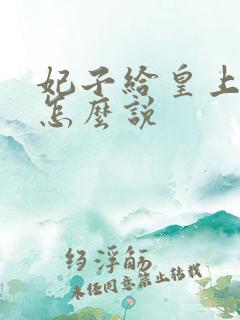 妃子給皇上
怎麼說
绉浮觞
未经同意禁止转载